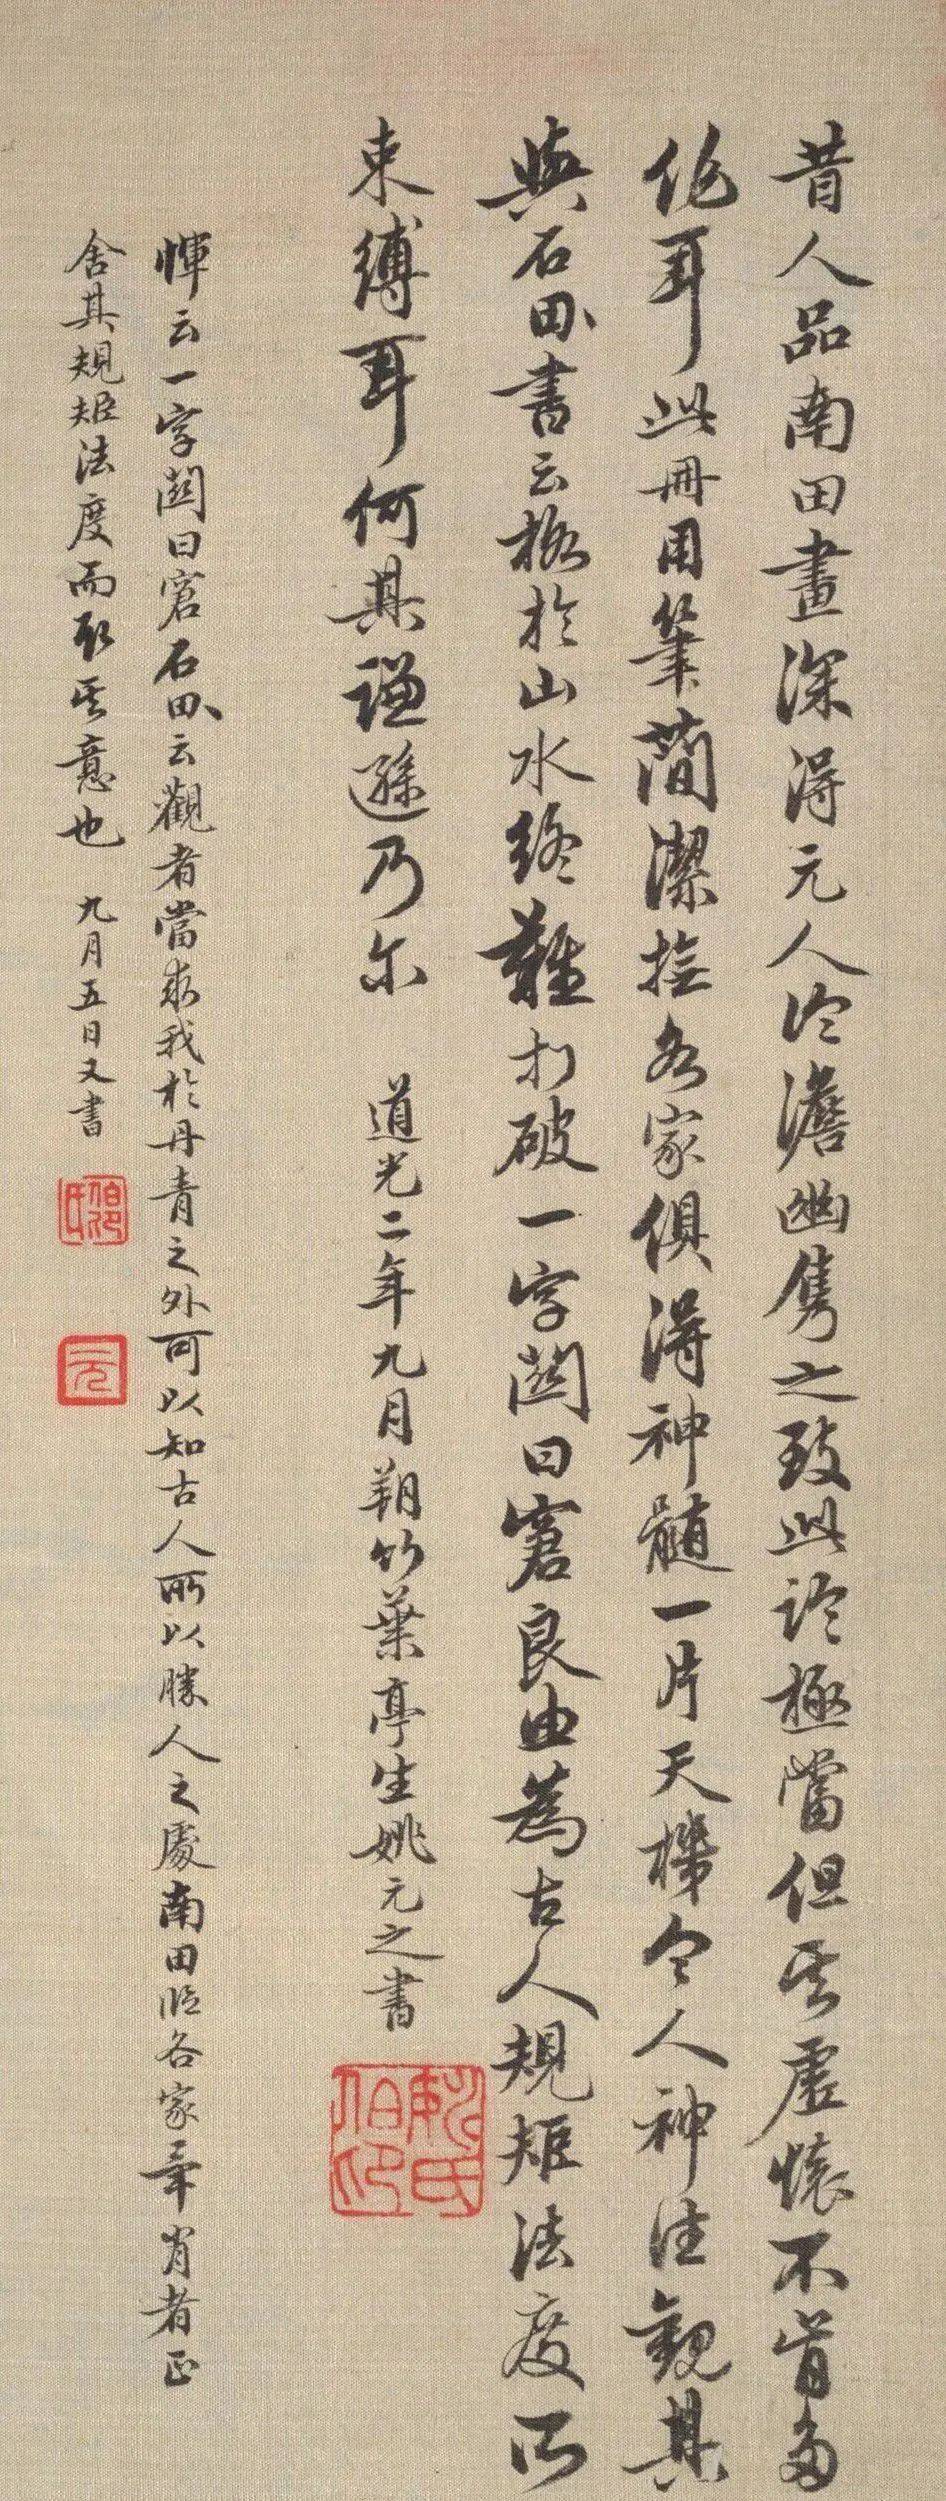 昔人品南田畫深得元人冷澹幽雋之致此論極當但其虛懷不肯多
作耳此冊用筆簡潔撫各家俱得神髓一片天機令人神往觀其
與石谷書云格於山水終難打破一字關曰窘良由為古人規矩法度所
束縛耳何其謙遜乃尔 道光二年九月朔竹葉亭生姚元之書
姚氏伯印
惲云一字關曰窘石田云觀者當求我於丹青之外可以知古人所以勝人之處南田臨各家畢肖者正
舍其規矩法度而取其意也 九月五日又書
元